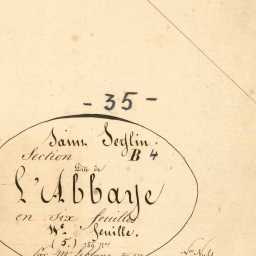 - 35 -
Saint Seglin.
Section B 4
dite de
L'Abbaye
en six feuilles
feuille.
(5.)
Par Mr